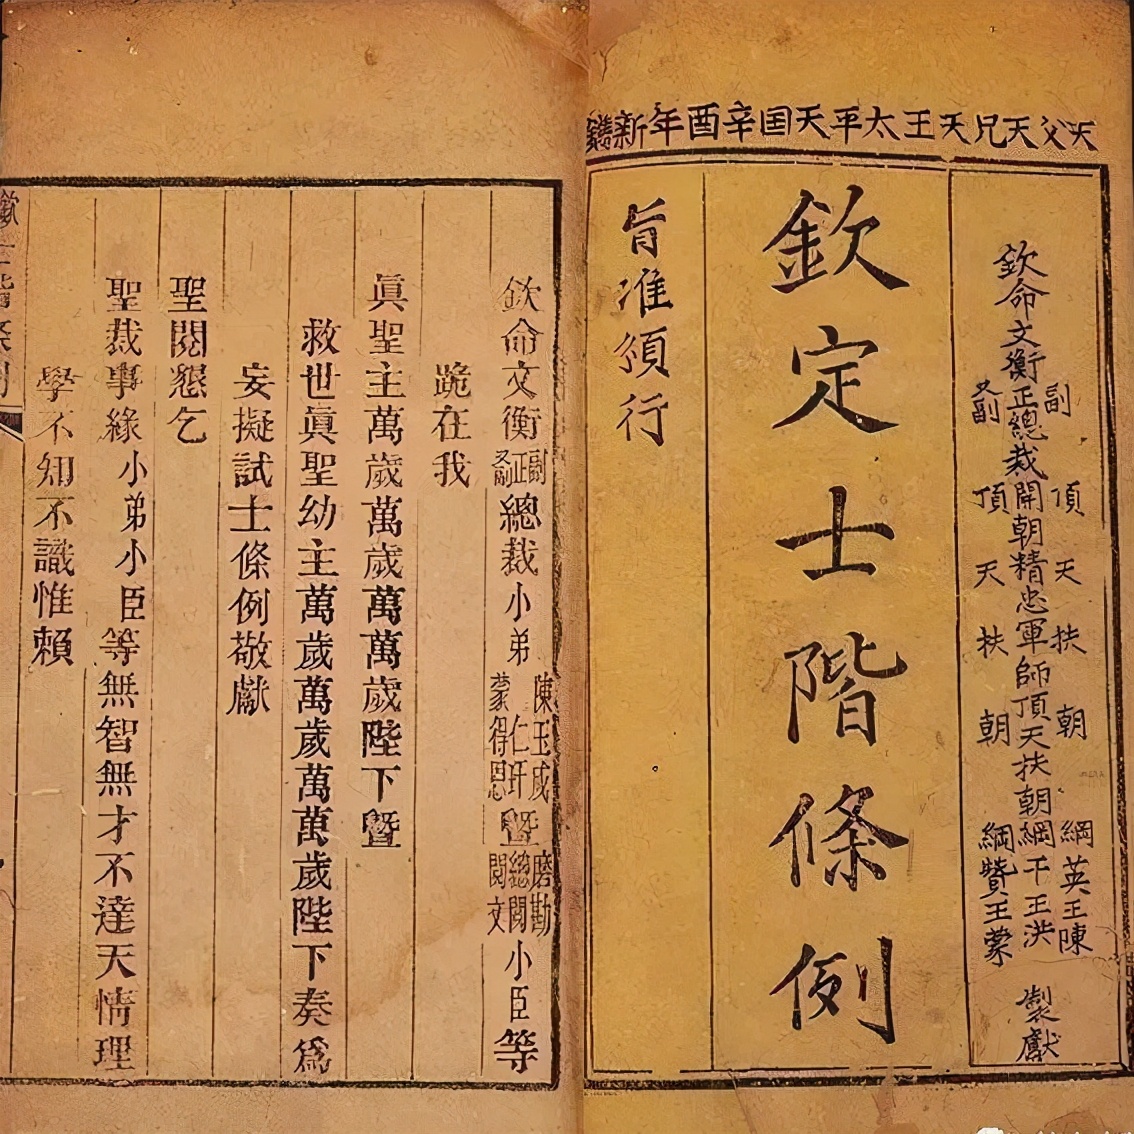 天父天兄天王太平天囯辛酉年新鐫
副 頂天扶朝綱英王陳
欽命文衡正總裁開朝精忠軍師頂天扶朝綱干王洪 製獻
又副 頂天扶朝綱贊王蒙
欽定士階條例
旨准頒行
欽命文衡副正又副總裁小弟陳玉成仁玕蒙得恩暨磨勘總閱閱文小臣等
跪在我
眞聖主萬歲萬歲萬萬歲陛下暨
救世眞聖幼主萬歲萬歲萬萬歲陛下奏爲
妄擬試士條例敬獻
聖閱懇乞
聖裁事緣小弟小臣等無智無才不達天情理
學不知不識惟賴